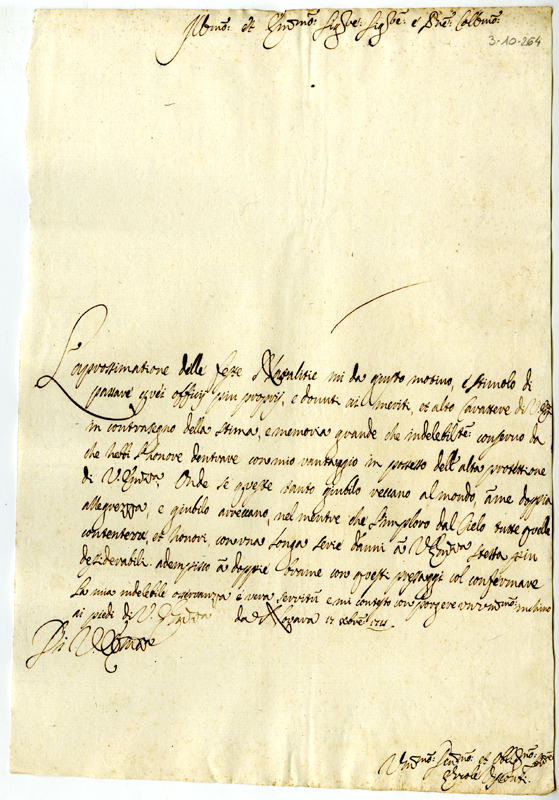 et Sig:re Sig:re e P:ne Coll:mo
3-10-264
L'approssimatione delle feste Natalitie mi da giusto motivo, e stimolo di
passare quei officij piu proprij, e douuti al merito, et alto Carattere di
in contrasegno della stima, e memoria grande che indelebilm:te conseruo da
che hebbi l'honore d'entrare con mio vantaggio in possesso dell'alta protettione
di V. Onde se queste tanto giubilo reccano al mondo, à me doppia
allegrezza, e giubilo arreccano, nel mentre che l'imploro dal Cielo tutte quelle
contentezze, et honori con una longa serie d'anni à V. stessa piu
desiderabili. adempisco à doppie brame con questi presaggi col confermare
La mia indelebile osseruanza e vera servitù e mi contesto con porgere un inchino
ai piedi di V. da Novara 17 Xbre 1711.
Di V.
et
Ercole Visconti